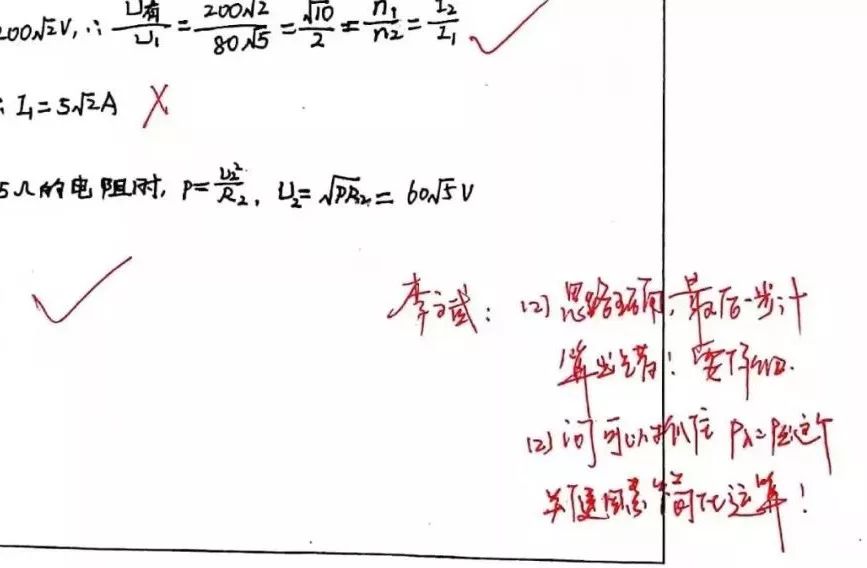 200√2V, ∴ U有/U₁ = 200√2/80√5 = √10/2 = n₁/n₂ = I₂/I₁
: I₁=5√2A
5Ω的电阻时, P=U₂²/R₂, U₂=√PR₂ = 60√5V
李文斌: (2) 思路正确, 最后一步计
算出错! 要仔细.
(2) 问可以抓住 P入=P出这个
关键因素 简化运算!